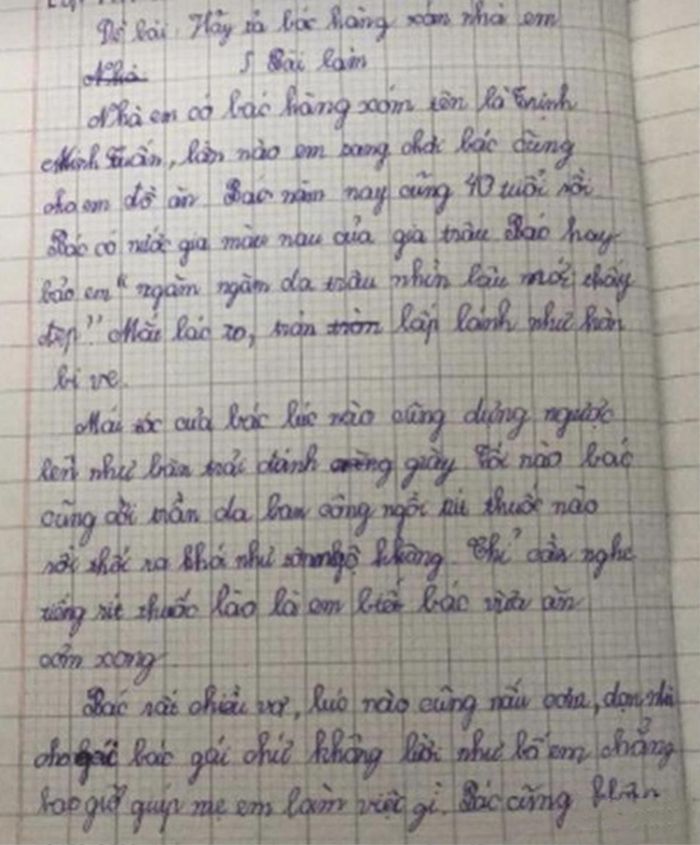 Đề bài. Hãy tả bác hàng xóm nhà em
Bài làm
Nhà em có bác hàng xóm tên là Trịnh
Minh Tuấn, lần nào em sang chơi bác cũng
cho em đồ ăn Bác năm nay cũng 40 tuổi rồi
Bác có nước gia màu nau của gia trâu Bác hay
bảo em "ngăm ngăm da trâu nhìn lâu mới thấy
đẹp" Mắt bác to, tròn lấp lánh như hòn
bi ve.
Mái tóc của bác lúc nào cũng dựng ngược
lên như bàn trải đánh giày Tối nào bác
cũng cởi trần da ban công ngồi rít thuốc nào
rồi thổi ra khói như khủng. Chỉ cần nghe
tiếng rít thuốc lào là em biết bác vừa ăn
cơm xong
Bác rất chiều vợ, lúc nào cũng nấu cơm, dọn nhà
cho bác gái chứ không lười như bố em chẳng
bao giờ giúp mẹ em làm việc gì. Bác cũng